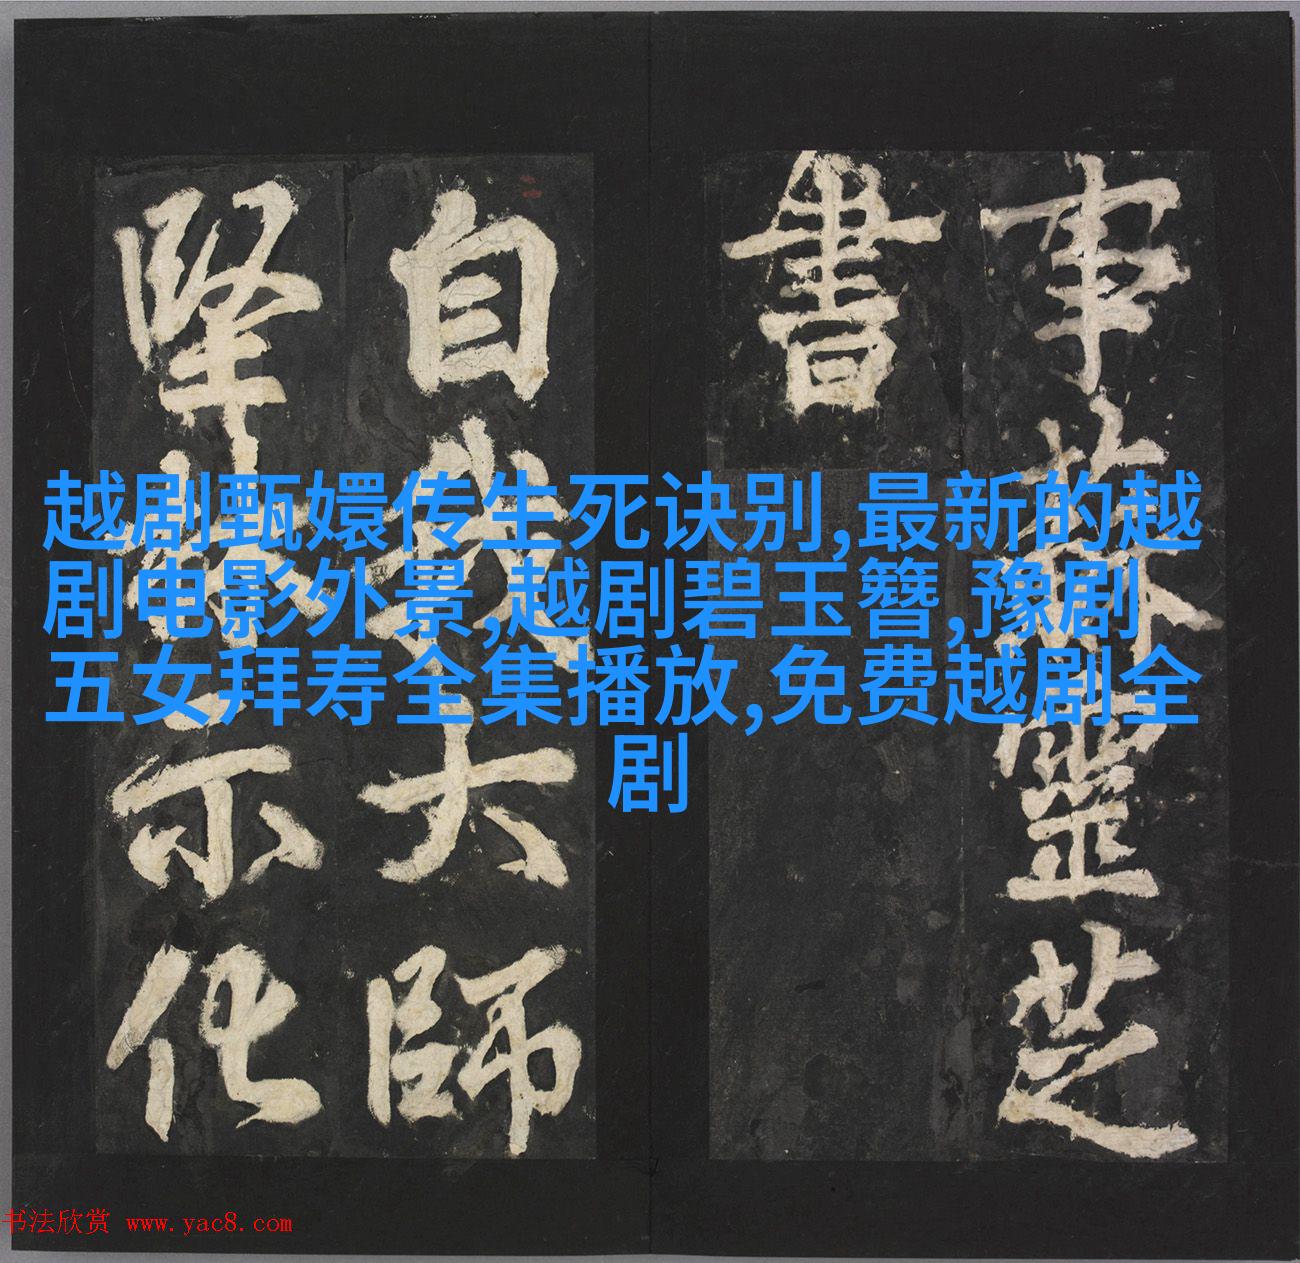 事蘇靈芝
書
自我大師
堅林示化
越剧甄嬛传生死诀别,最新的越
剧电影外景,越剧碧玉簪,豫剧
五女拜寿全集播放,免费越剧全
剧
书法欣赏 www.yac8.com